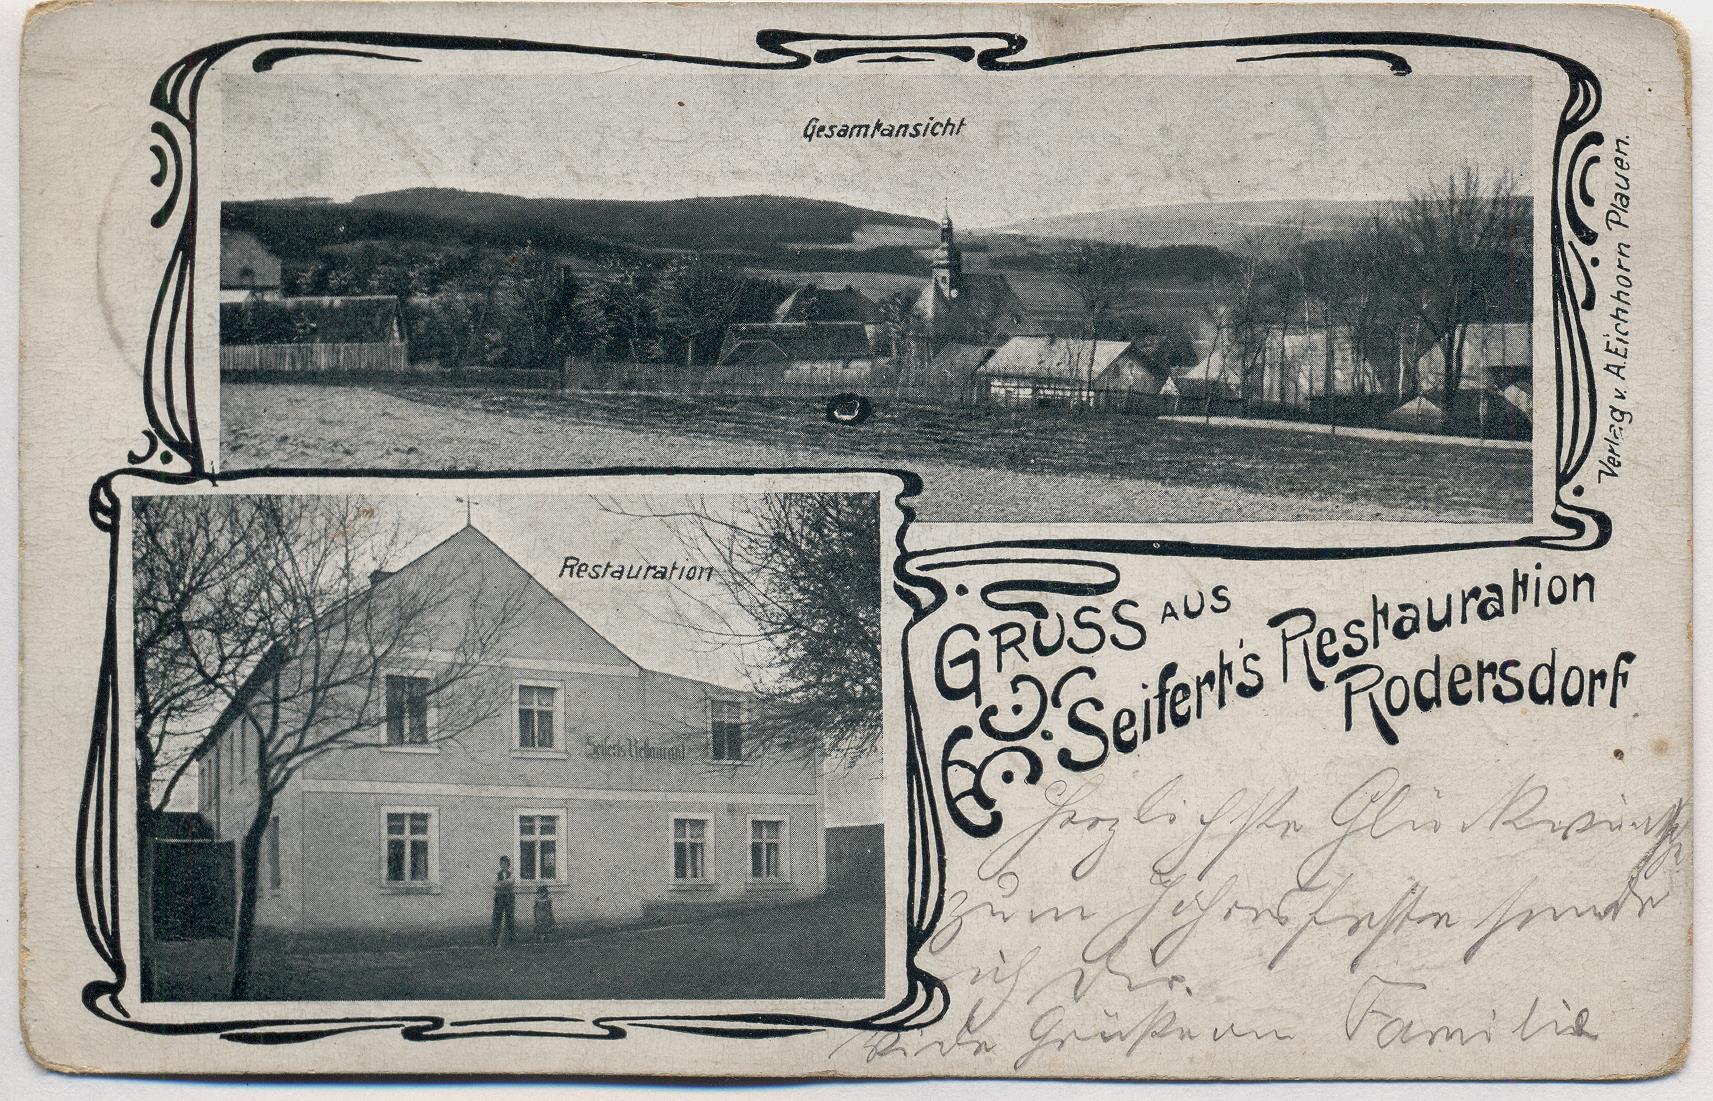 Gesamtansicht
Verlag v. A. Eichhorn Plauen.
Restauration
Seiferts Restaurant
GRUSS AUS
Seifert's Restauration
Rodersdorf
Herzlichste Glückwünsche
zum sende
ich Dir.
Viele Grüße an Familie